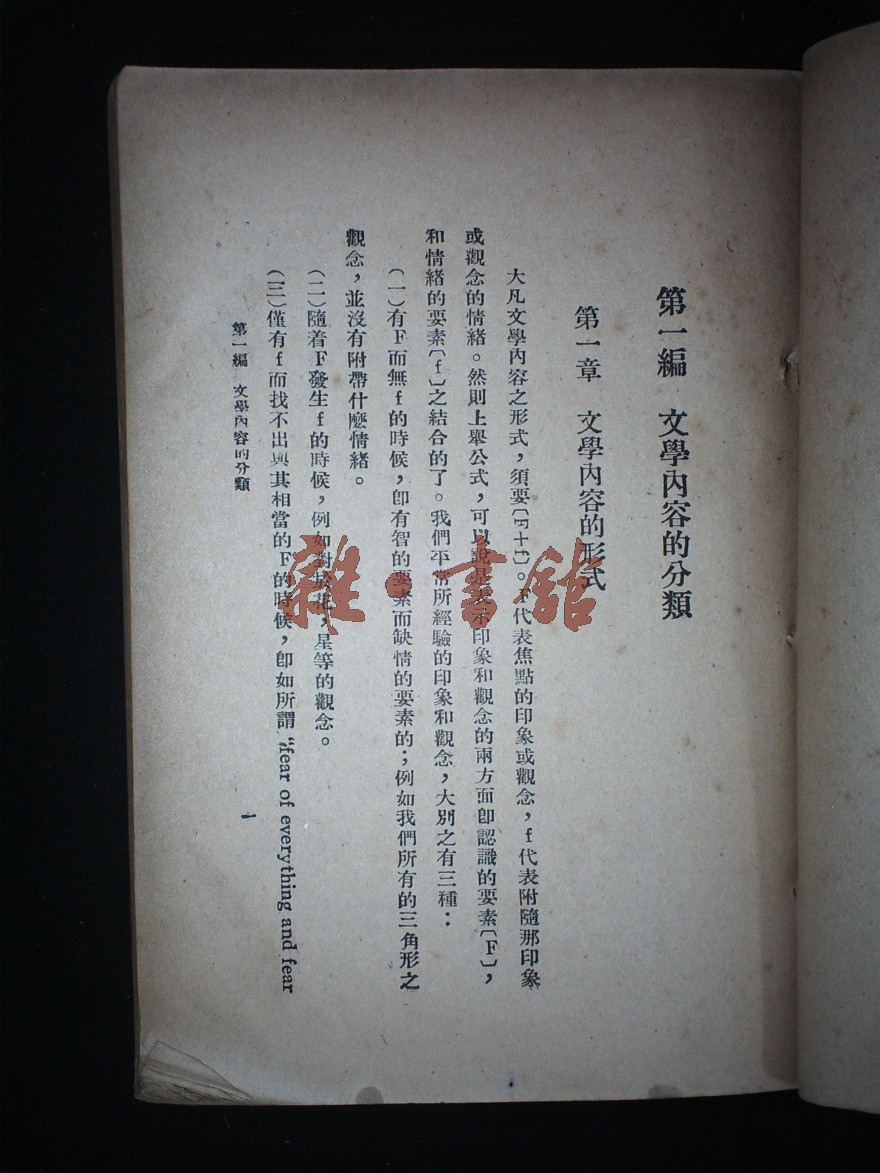 第一編　文學內容的分類
第一章　文學內容的形式
大凡文學內容之形式，須要〔F＋f〕。F代表焦點的印象或觀念，f代表附隨那印象
或觀念的情緒。然則上舉公式，可以說是表示印象和觀念的兩方面卽認識的要素〔F〕，
和情緒的要素〔f〕之結合的了。我們平常所經驗的印象和觀念，大別之有三種：
（一）有F而無f的時候，卽有智的要素而缺情的要素的；例如我們所有的三角形之
觀念，並沒有附帶什麽情緒。
（二）隨着F發生f的時候，例如對於花，星等的觀念。
（三）僅有f而找不出與其相當的F的時候，卽如所謂“fear of everything and fear
第一編　文學內容的分類
一
雜·書館